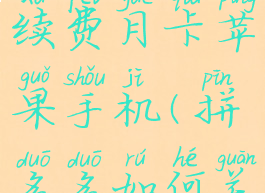 xù fèi yuè kǎ píng
续费月卡苹
guǒ shǒu jī pīn
果手机(拼
duō duō rú hé guān
多多如何关